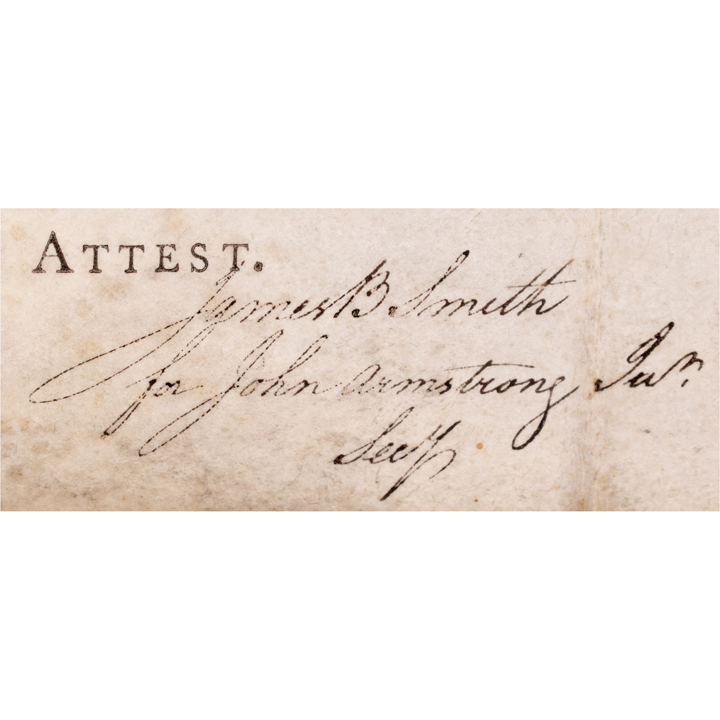 ATTEST.
James B. Smith
for John Armstrong Junr
Secy